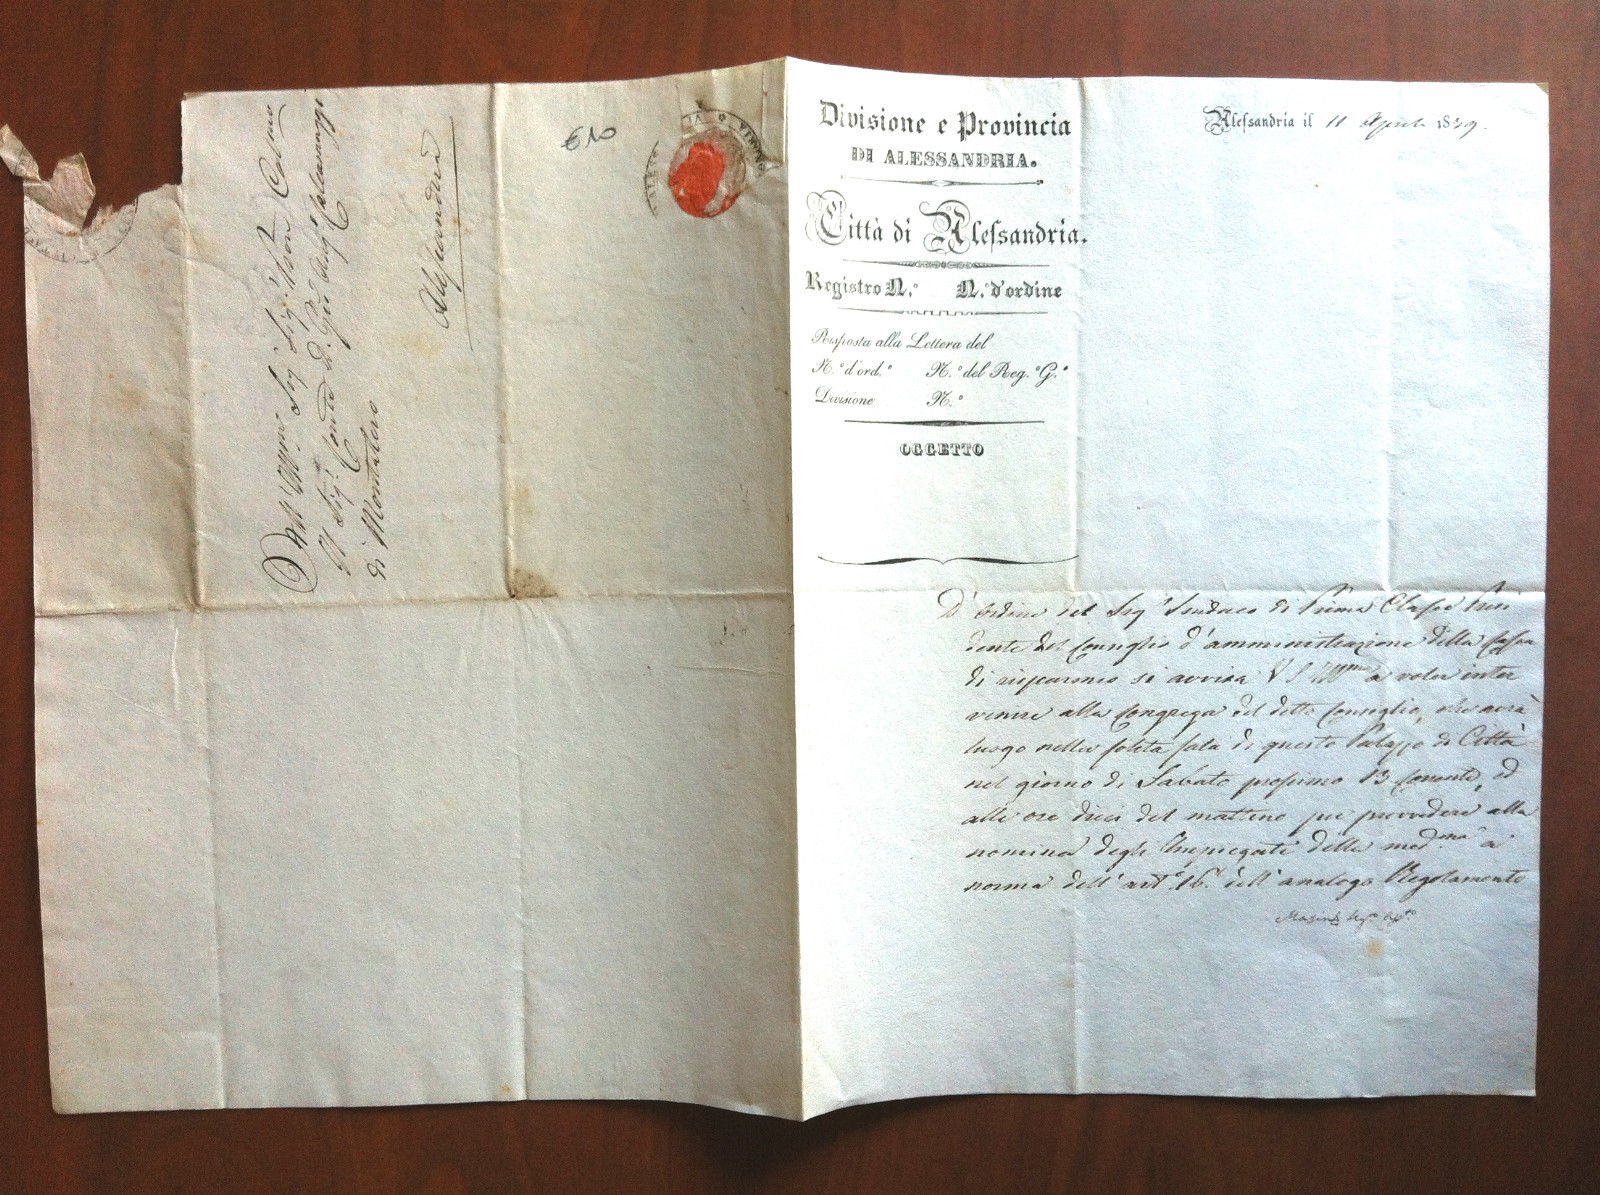 All' Ill.mo Sig. Sig. P.ron Colmo
Il Sig.r Conte D. Giu.
di Montalero
Alessandria
€10
Divisione e Provincia
DI ALESSANDRIA.
Città di Alessandria.
Registro N.° N.° d'ordine
Risposta alla Lettera del
N.° d'ord.e N.° del Reg. G.e
Divisione N.°
OGGETTO
Alessandria il 11 Aprile 1839.
D'ordine del Sig.r Sindaco di Prima Classe Presi
dente del Consiglio d'amministrazione della Cassa
di risparmio si avvisa V S Ill.ma a voler inter
venire alla Congrega del detto Consiglio, che avrà
luogo nella solita sala di questo Palazzo di Città
nel giorno di Sabato prossimo 13 Corrente, ed
alle ore dieci del mattino per provvedere alla
nomina degli Impiegati della med.ma a
norma dell' art.° 16. dell' analogo Regolamento